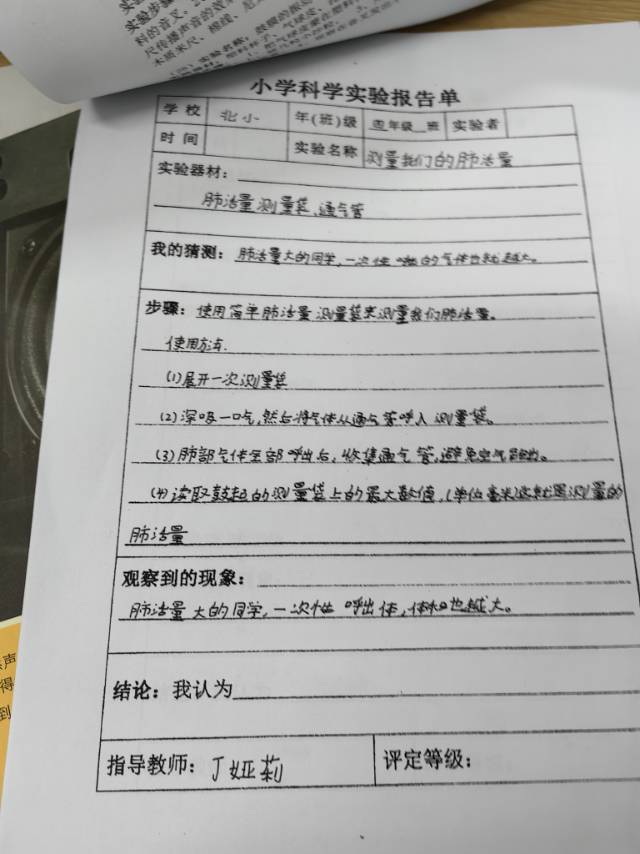 实验步骤
料的音叉
尺传播声音的效果
木质米尺、棉线、尼
小学科学实验报告单
学校 北小 年(班)级 四年级 班 实验者
时间 实验名称 测量我们的肺活量
实验器材:
肺活量测量袋,通气管
我的猜测: 肺活量大的同学,一次性呼出的气体也就越大。
步骤: 使用简单肺活量测量袋来测量我们肺活量。
使用方法.
(1)展开一次测量袋
(2)深吸一口气,然后将气体从通气管呼入测量袋。
(3)肺部气体全部呼出后,收集通气管,避免空气
(4)读取鼓起的测量袋上的最大数值,(单位毫米)这就是测量的
肺活量
观察到的现象:
肺活量大的同学,一次性呼出体,体积也越大。
结论: 我认为
指导教师: 丁娅莉 评定等级:
声
得
到